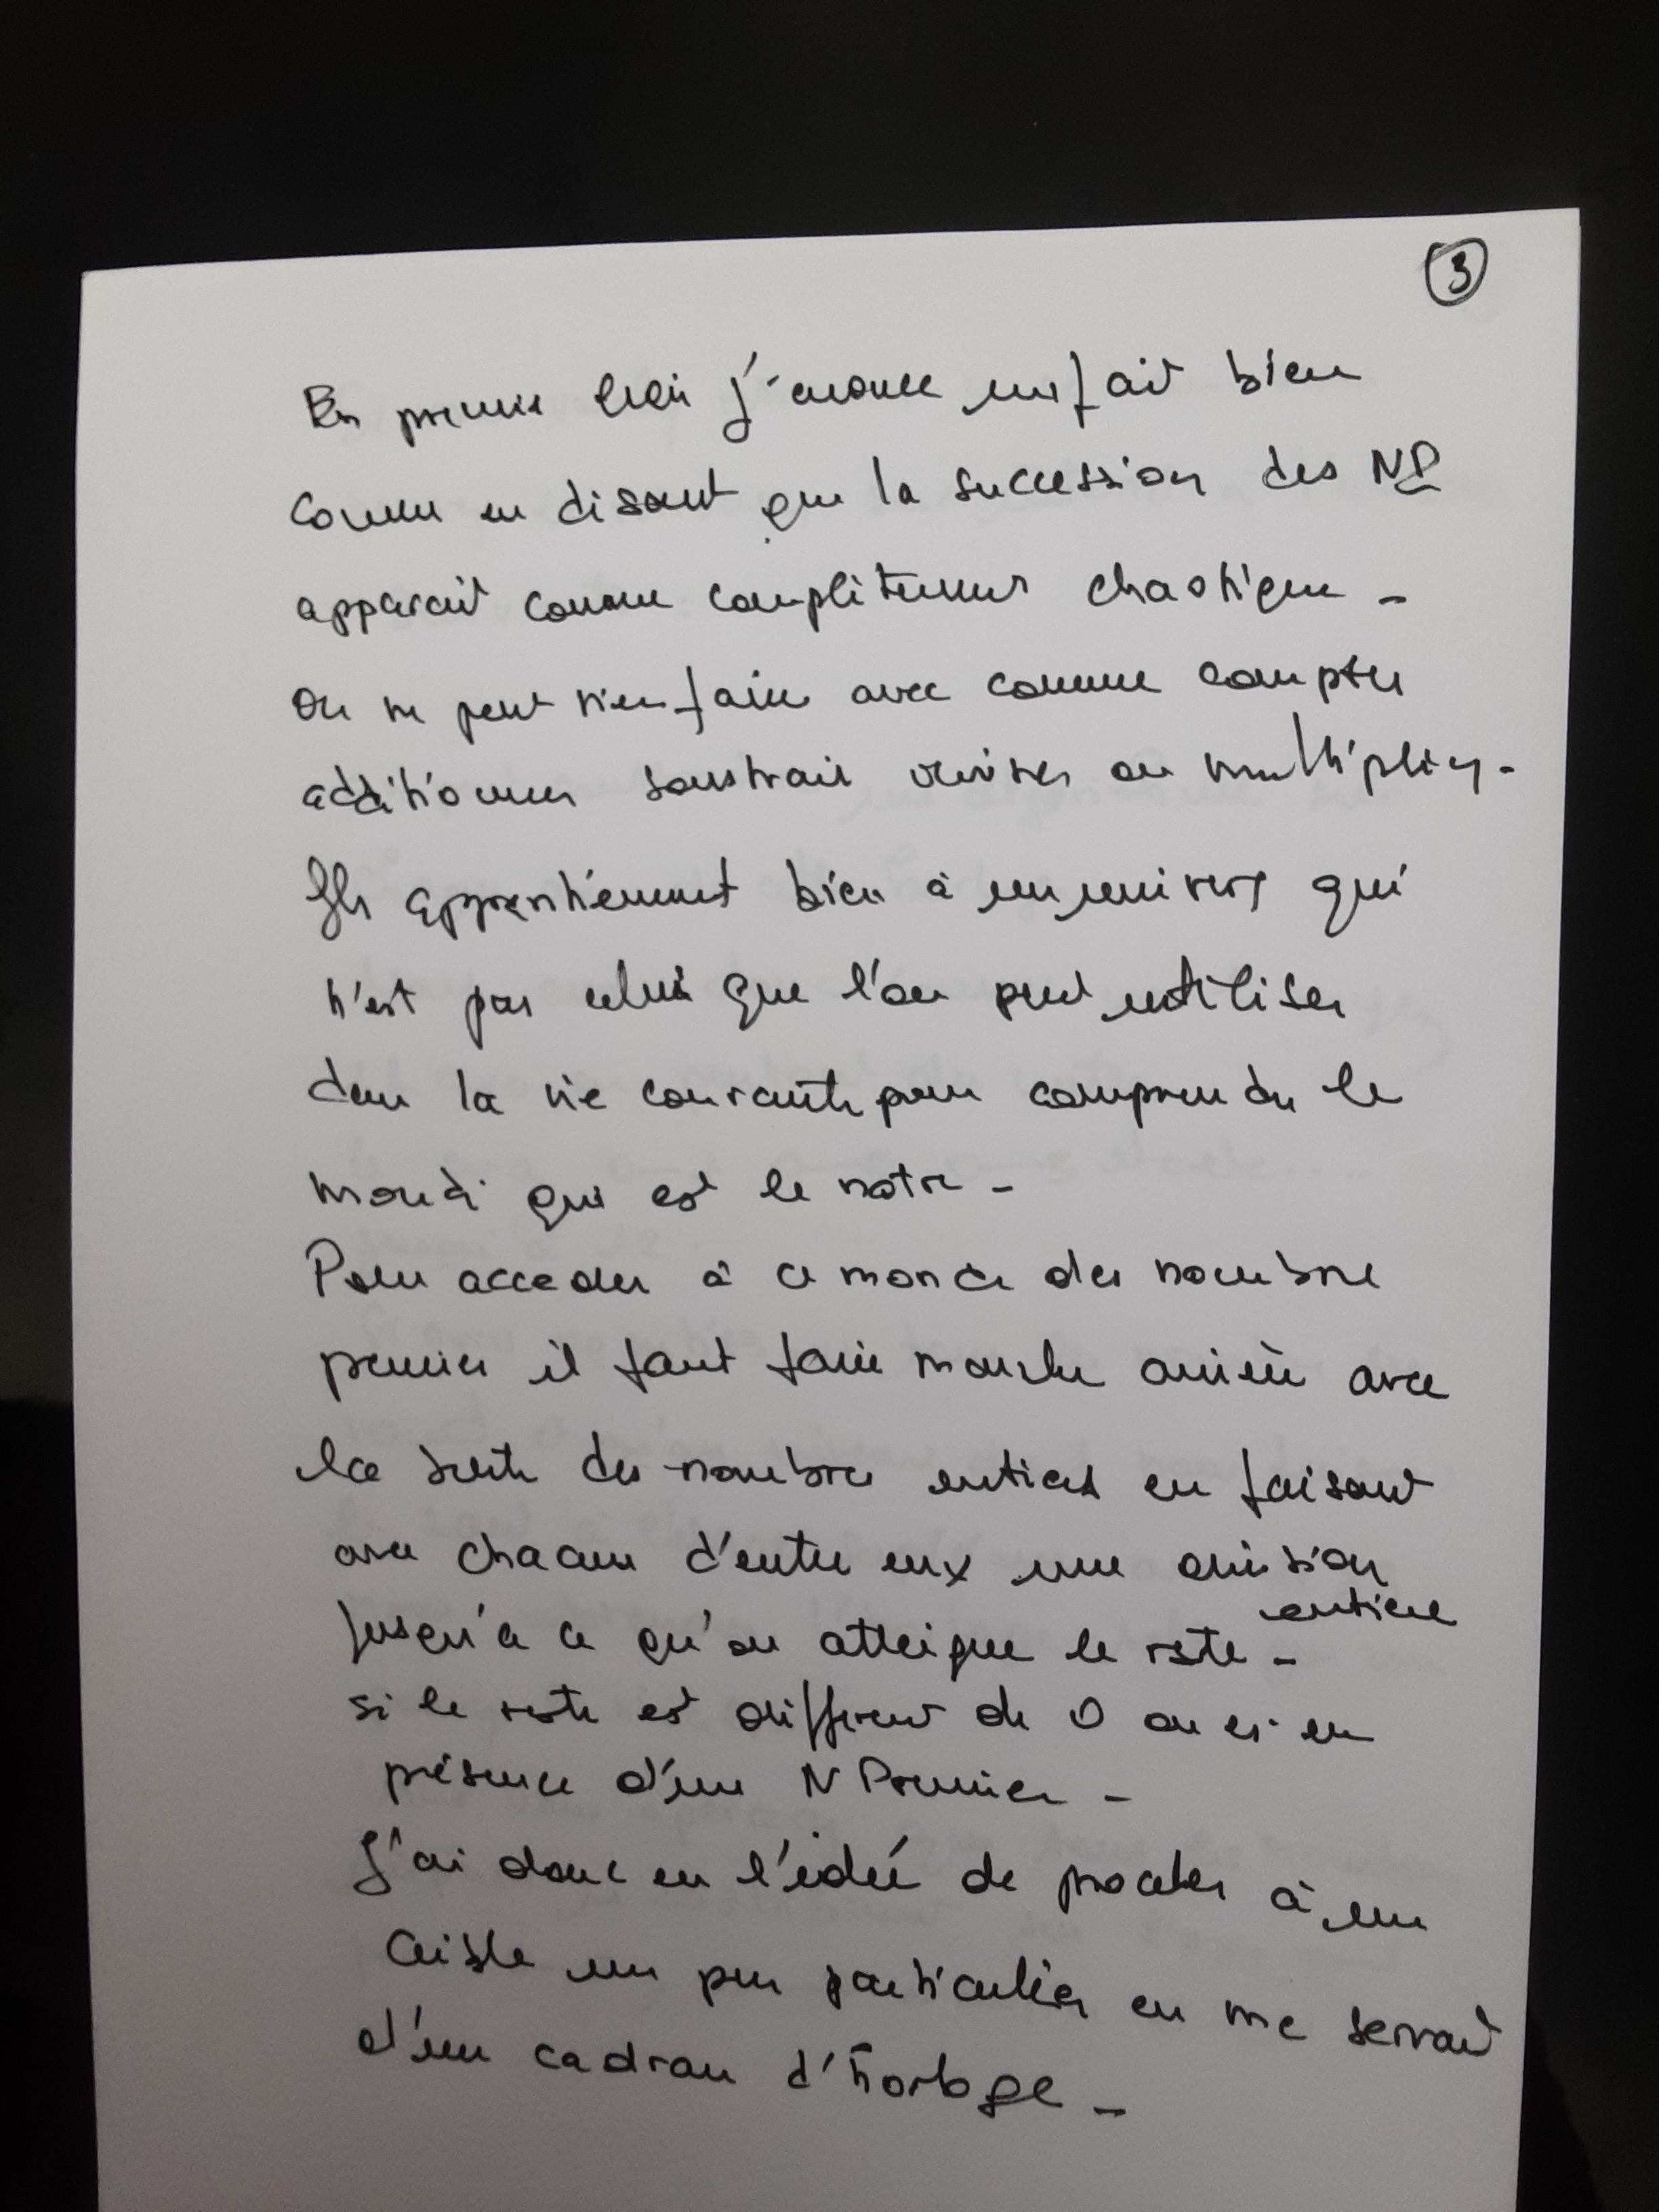 3
En premier lieu j'énonce un fait bien
connu en disant que la succession des NP
apparait comme complètement chaotique -
on ne peut rien faire avec comme compter
additionner soustraire diviser ou multiplier -
Ils appartiennent bien à un univers qui
n'est pas celui que l'on peut utiliser
dans la vie courante pour comprendre le
monde qui est le notre -
Pour acceder à ce monde des nombre
premier il faut faire marche arrière avec
la suite des nombres entiers en faisant
avec chacun d'entre eux une division
entiere
jusqu'à ce qu'on atteigne le reste -
si le reste est different de 0 on est en
présence d'un N Premier -
J'ai donc eu l'idée de proceder à un
crible un peu particulier en me servant
d'un cadran d'horloge -